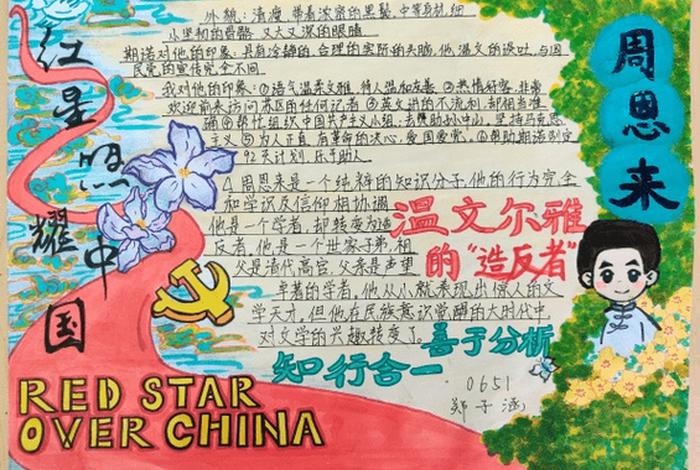 红星照耀中国
周恩来
外貌：清瘦，带着浓密的黑髮，中等身材，细
小坚韧的骨骼，又大又深的眼睛
期诺对他的印象：具有冷静的、合理的、实际的头脑，他温文的谈吐，与国
民党的宣传完全不同
我对他的印象：①语气温柔文雅，待人温和友善，②热情好客，非常
欢迎前来访问苏区的任何记者 ③英文讲的不流利，却相当准
确 ④帮忙组织中国共产主义小组；去赞助孙中山，坚持马克思
主义 ⑤为人正直，有革命的决心，爱国爱党。⑥帮助期诺制定
92天计划，乐于助人
4 周恩来是一个纯粹的知识分子，他的行为完全
和学识及信仰相协调
他是一个学者，却转变为造
反者，他是一个世家子弟，祖
父是清代高官，父亲是声望
卓著的学者，他从小就表现出惊人的文
学天才，但他在民族意识觉醒的大时代中
对文学的兴趣转变了。
温文尔雅
的“造反者”
善于分析
知行合一
0651
郑子涵
RED STAR
OVER CHINA